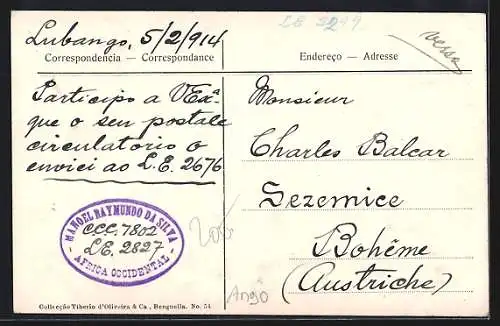 Lubango, 5/2/914
LE 3299
verso
Correspondencia — Correspondance
Endereço — Adresse
Participo a VExª
que o seu postale
circulatorio o
enviei ao L.E. 2676
MANOEL RAYMUNDO DA SILVA
C.C.C. 7802
LE. 2827
AFRICA OCCIDENTAL
Monsieur
Charles Balcar
Sezemice
Bohême
(Austriche)
Collecção Tiberio d'Oliveira & Ca, Benguella. No. 54